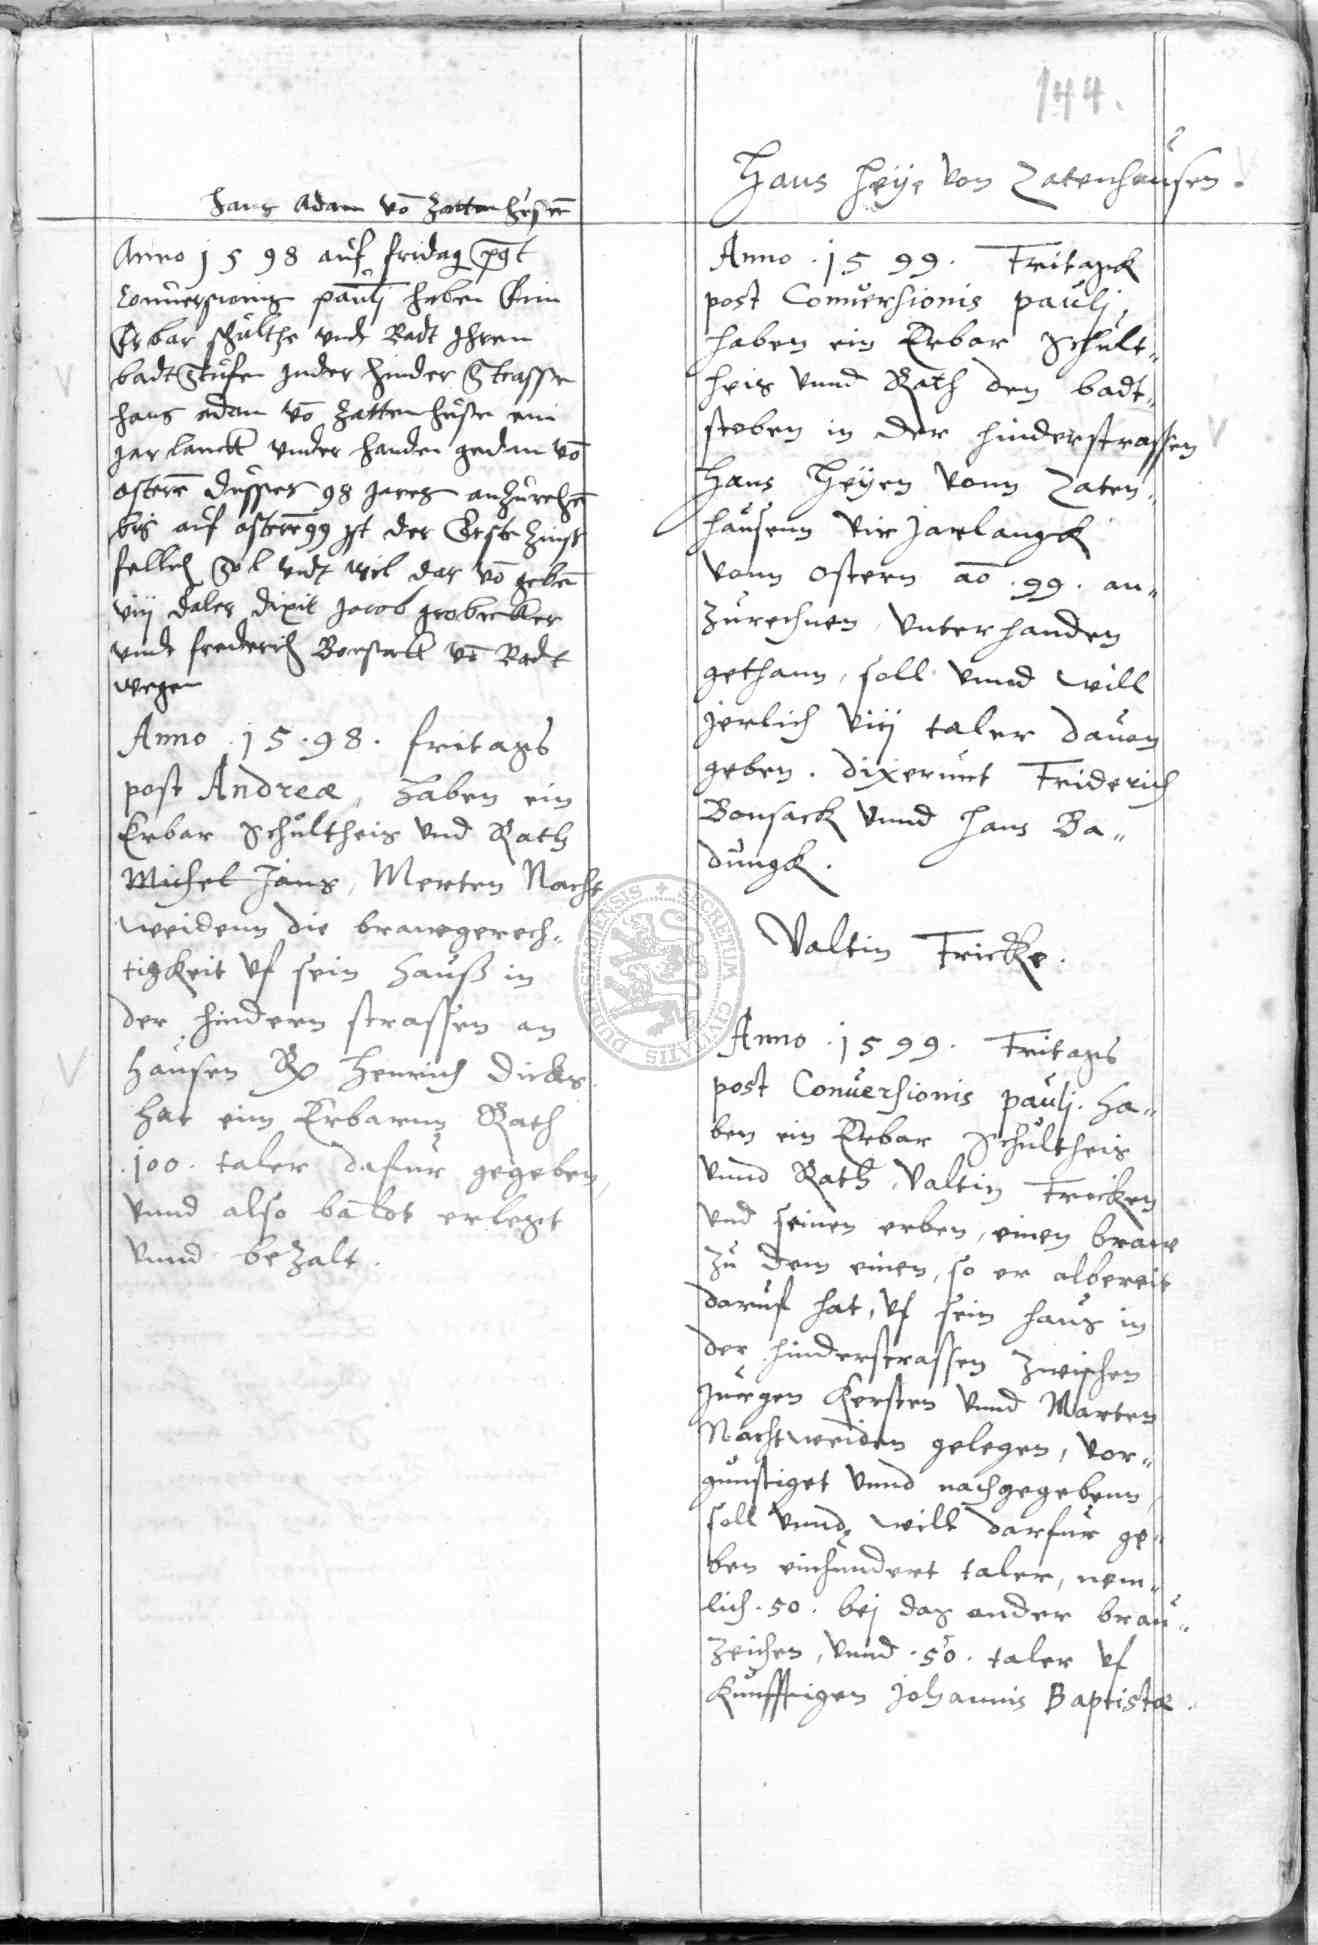 144.
Hans Adam vō Zattenhusen
Anno 1598 auf fridag post
Conuersionis pauly haben Ein
Erbar schulthe vndt Radt Ihren
badtstufen Inder hinder Strasse
hans adam vō Zattenhusen ein
Jar lanck vnder handen gedan vō
ostern dusses 98 Jares anzurechē
bis auf ostern 99 Ist der Erste Zinse
fellich Sol vndt wil dar vō gebē
viij daler dixit Jacob
vndt frederich Bonsack vō Radt
wegen
Anno .15.98. fritags
post Andreæ, Haben ein
Erbar Schultheis vnd Rath
Michel Jans, Merten Nacht
weidenn die brawgerech-
tigkeit vf sein Hauß in
der hindern strassen an
Hausen Henrich Dicks
Hat eim Erbarnn Rath
.100. taler dafur gegeben,
vnnd also erlegt
vnnd bezalt.
Hans Heÿe von Zatenhausen.
Anno .1599. Fritagk
post Conuersionis paulj
haben ein Erbar Schult-
heis vnnd Rath den badt-
stoben in der hinderstrassen
Hans Heÿen vonn Zaten-
hausenn vir Jarlangk
vonn ostern aō .99. an-
zurechnen, vnterhanden
gethann, soll vnnd will
jerlich viij taler dauon
geben. dixerunt Friderich
Bonsack vnnd Hans Ba-
dungk.
Valtin Fricke.
Anno .1599. Fritags
post Conuersionis paulj. Ha-
ben ein Erbar Schultheis
vnnd Rath, Valtin Fricken
vnd seinen erben, einen braw
zu dem einen, so er albereit
daruf hat, vf sein haus in
der hinderstrassen zwischen
Jurgen Kersten vnnd Marten
Nachtweiden gelegen, vor-
gunstiget vnnd nachgegebenn,
soll vnnd will darfur ge-
ben einhundert taler, nem-
lich .50. bej das ander brau-
zeichen, vnnd .50. taler vf
Kunfftigen Johannis Baptistæ.
SECRETUM CIVITATIS DUDERSTADIENSIS